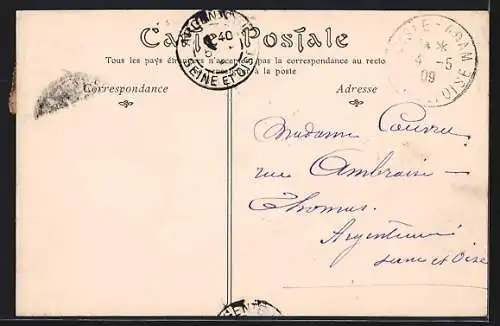 Carte Postale
Tous les pays étrangers n'acceptent pas la correspondance au recto
à la poste
Correspondance
Adresse
ARGENTEUIL
SEINE ET OISE
L'ISLE-ADAM
4 -5
09
Madame Couvru
rue Ambroise
Thomas.
Argenteuil
Seine et Oise